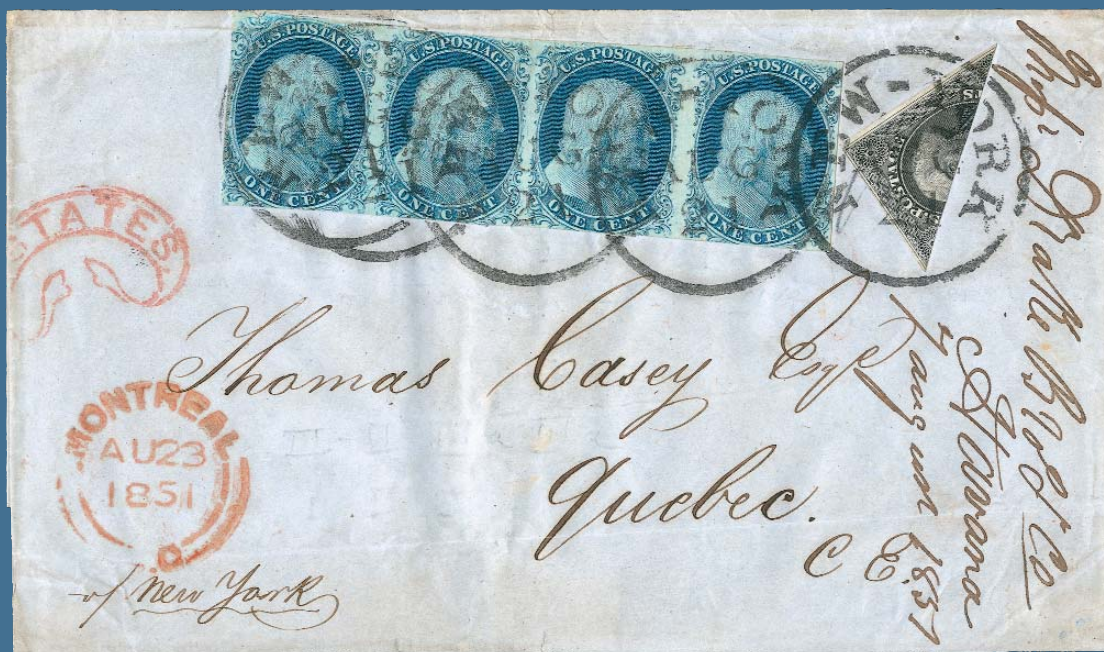 U.S. POSTAGE
ONE CENT
U.S. POSTAGE
ONE CENT
U.S. POSTAGE
ONE CENT
U.S. POSTAGE
ONE CENT
NEW-YORK
POSTAGE
STATES.
MONTREAL
AU23
1851
Thomas Casey Esqr
Quebec.
C E.
of New York
Drake & Co
Havana
4 August 1851